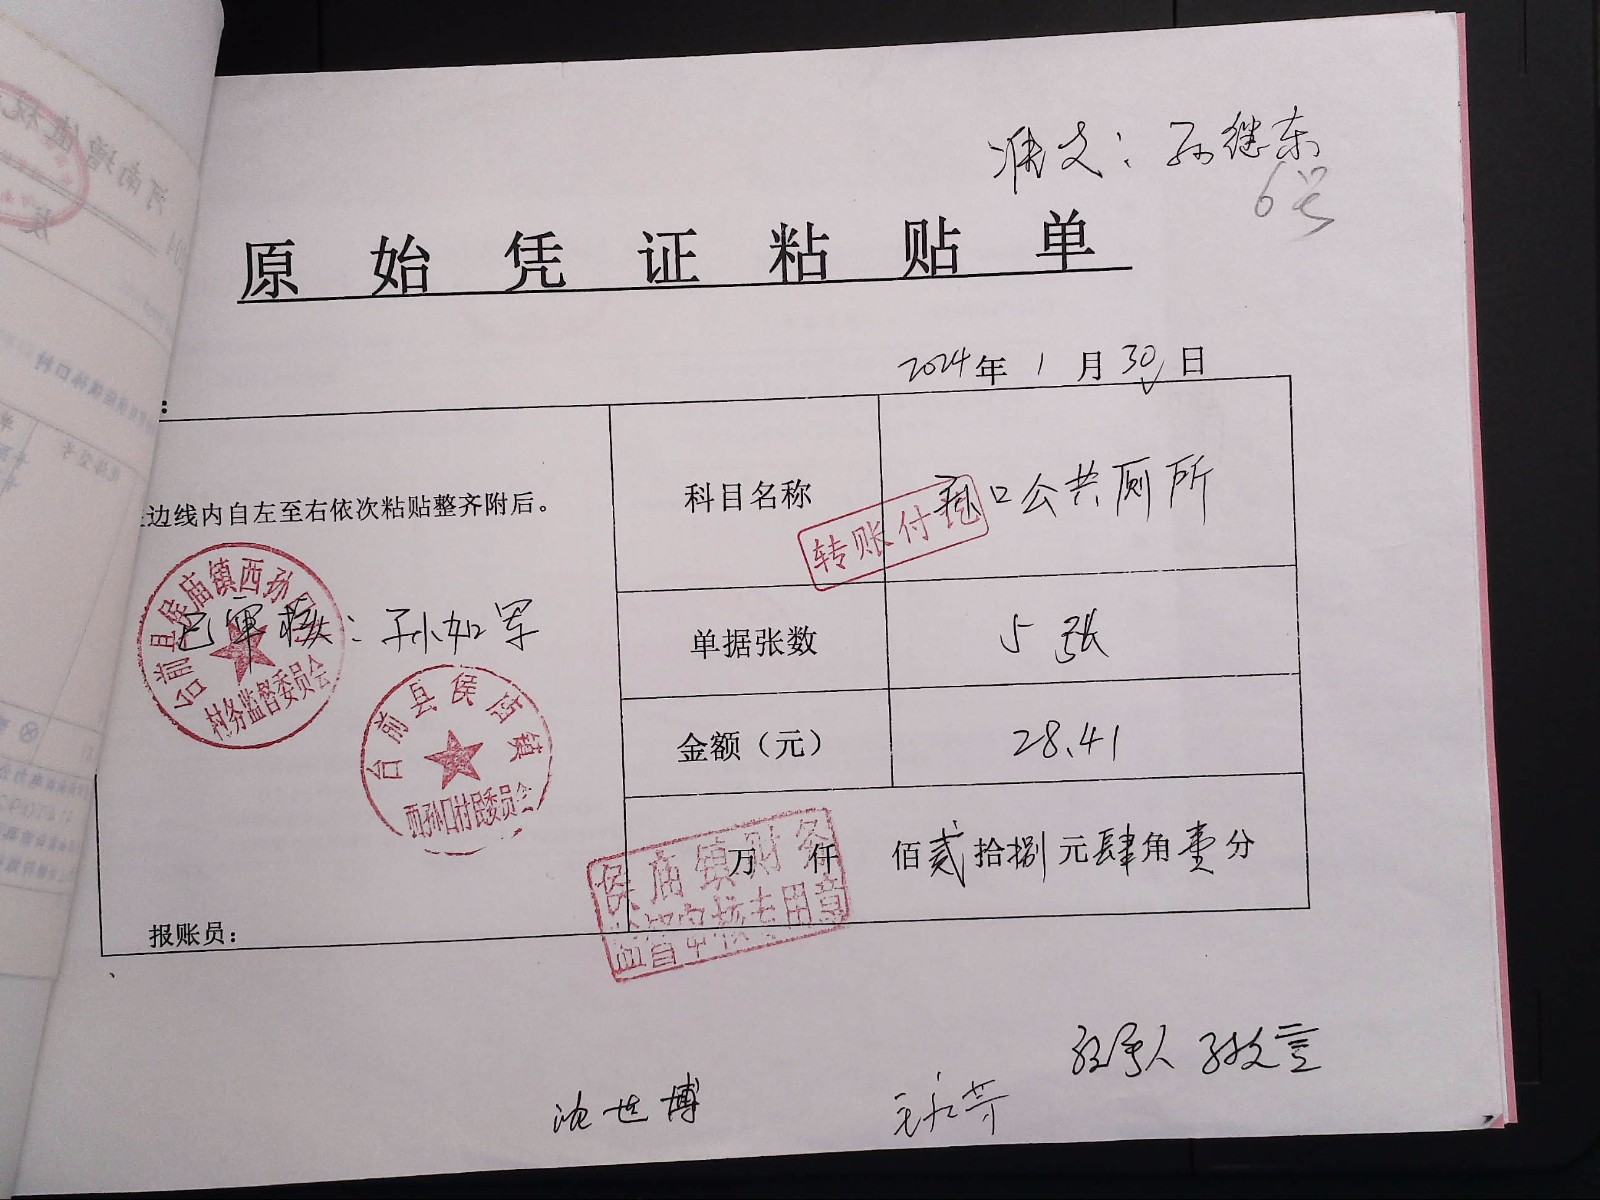 准支：孙继东
6号
原始凭证粘贴单
2024年1月30日
：
边线内自左至右依次粘贴整齐附后。
科目名称
孙口公共厕所
转账付讫
台前县侯庙镇西孙口
村务监督委员会
已审核：孙如军
单据张数
5张
台前县侯庙镇
西孙口村民委员会
金额（元）
28.41
万仟佰贰拾捌元肆角壹分
侯庙镇财务
监督审核专用章
报账员：
经手人
沈世博